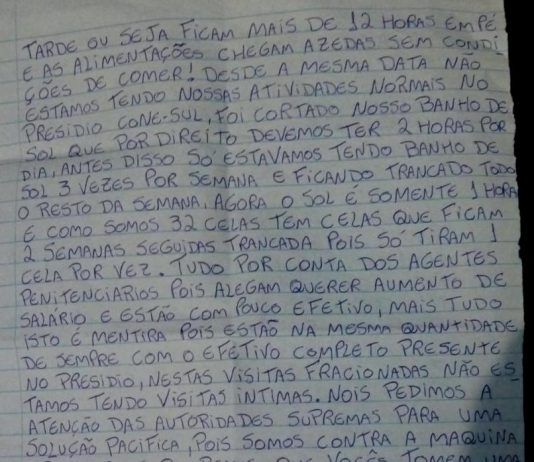 TARDE OU SEJA FICAM MAIS DE 12 HORAS EMPÉ
E AS ALIMENTAÇÕES CHEGAM AZEDAS SEM CONDI
ÇÕES DE COMER! DESDE A MESMA DATA NÃO
ESTAMOS TENDO NOSSAS ATIVIDADES NORMAIS NO
PRESIDIO CONE-SUL, FOI CORTADO NOSSO BANHO DE
SOL QUE POR DIREITO DEVEMOS TER 2 HORAS POR
DIA, ANTES DISSO SÓ ESTAVAMOS TENDO BANHO DE
SOL 3 VEZES POR SEMANA E FICANDO TRANCADO TODO
O RESTO DA SEMANA, AGORA O SOL É SOMENTE 1 HORA
E COMO SOMOS 32 CELAS TEM CELAS QUE FICAM
2 SEMANAS SEGUIDAS TRANCADA POIS SÓ TIRAM 1
CELA POR VEZ. TUDO POR CONTA DOS AGENTES
PENITENCIARIOS POIS ALEGAM QUERER AUMENTO DE
SALÁRIO E ESTÃO COM POUCO EFETIVO, MAIS TUDO
ISTO É MENTIRA POIS ESTÃO NA MESMA QUANTIDADE
DE SEMPRE COM O EFETIVO COMPLETO PRESENTE
NO PRESIDIO, NESTAS VISITAS FRACIONADAS NÃO ES-
TAMOS TENDO VISITAS INTIMAS. NOIS PEDIMOS A
ATENÇÃO DAS AUTORIDADES SUPREMAS PARA UMA
SOLUÇÃO PACIFICA, POIS SOMOS CONTRA A MAQUINA
QUE VOCÊS TOMEM UMA